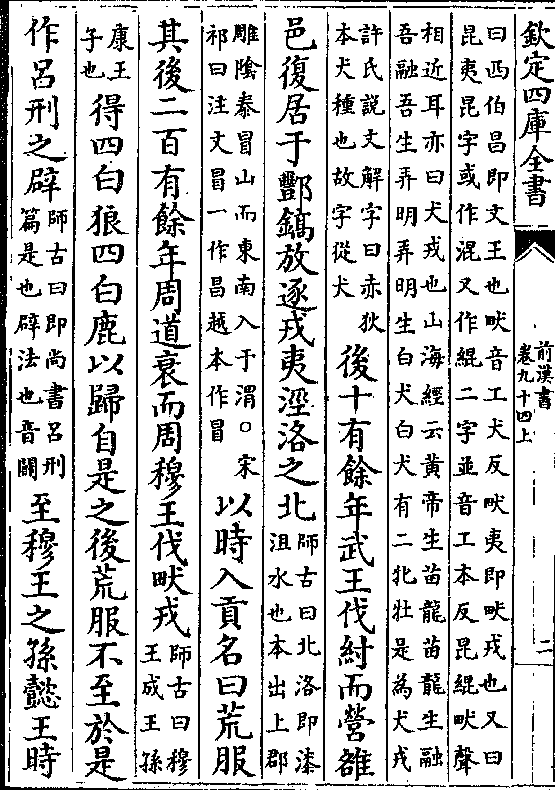 欽定四庫全書
前漢書
卷九十四上
二
曰西伯昌即文王也畎音工犬反畎夷即畎戎也又曰
昆夷昆字或作混又作緄二字並音工本反昆緄畎聲
相近耳亦曰犬戎也山海經云黃帝生苗龍苗龍生融
吾融吾生弄明弄明生白犬白犬有二牝牡是為犬戎
許氏說文解字曰赤狄
本犬種也故字從犬
後十有餘年武王伐紂而營雒
邑復居于酆鎬放逐戎夷涇洛之北
師古曰北洛即漆
沮水也本出上郡
雕陰泰冒山而東南入于渭○宋
祁曰注文冒一作昌越本作冒
以時入貢名曰荒服
其後二百有餘年周道衰而周穆王伐畎戎
師古曰穆
王成王孫
康王
子也
得四白狼四白鹿以歸自是之後荒服不至於是
作呂刑之辟
師古曰即尚書呂刑
篇是也辟法也音闢
至穆王之孫懿王時